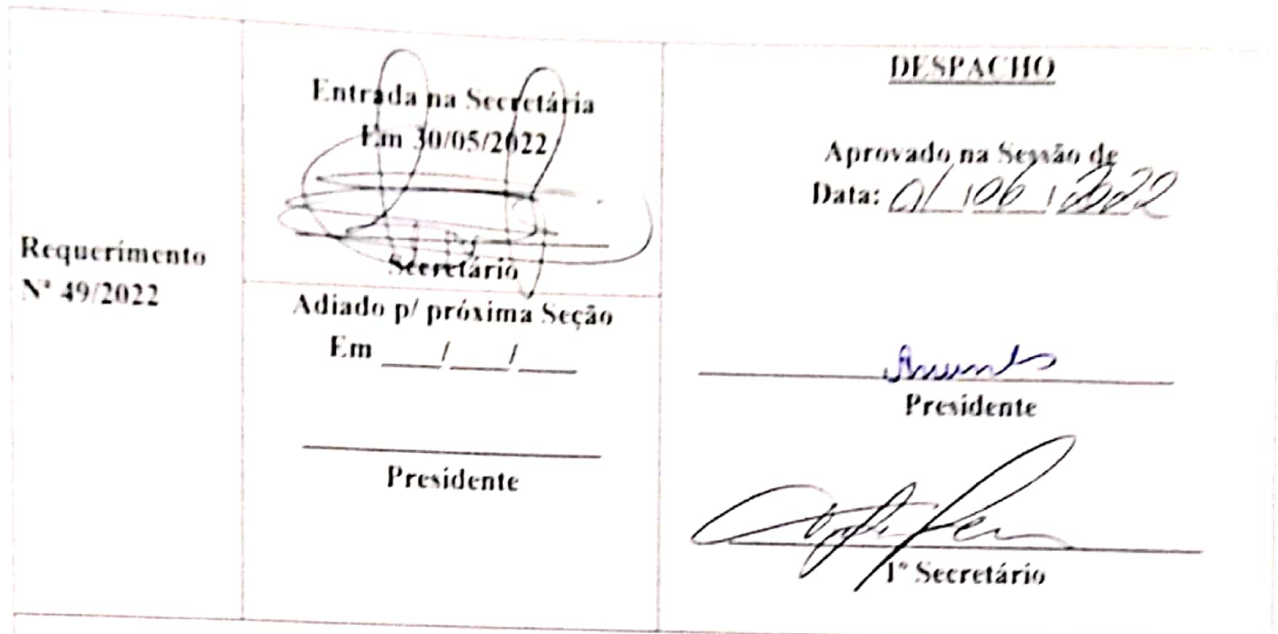 Requerimento
Nº 49/2022
Entrada na Secretária
Em 30/05/2022
Secretário
Adiado p/ próxima Seção
Em ___/___/___
Presidente
DESPACHO
Aprovado na Sessão de
Data: 01/06/2022
Presidente
1º Secretário